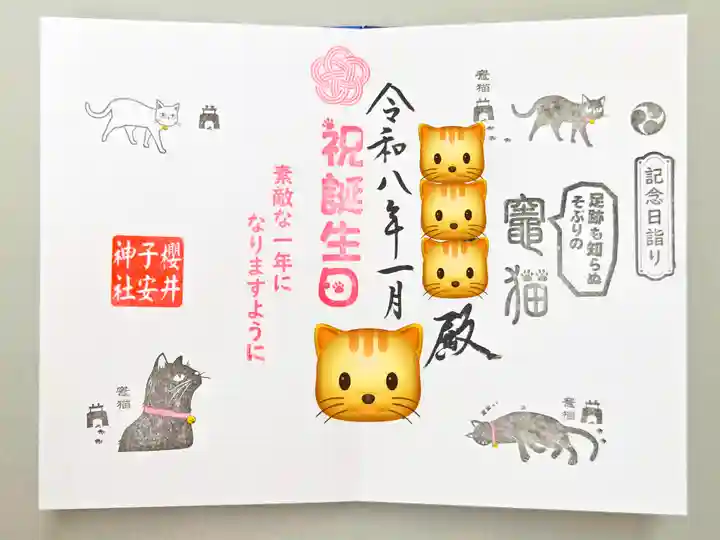 記念日詣り
足跡も知らぬ
そぶりの
竈猫
竈猫
竈猫
殿
令和八年一月
祝誕生日
素敵な一年に
なりますように
竈猫
櫻井
子安
神社
竈猫